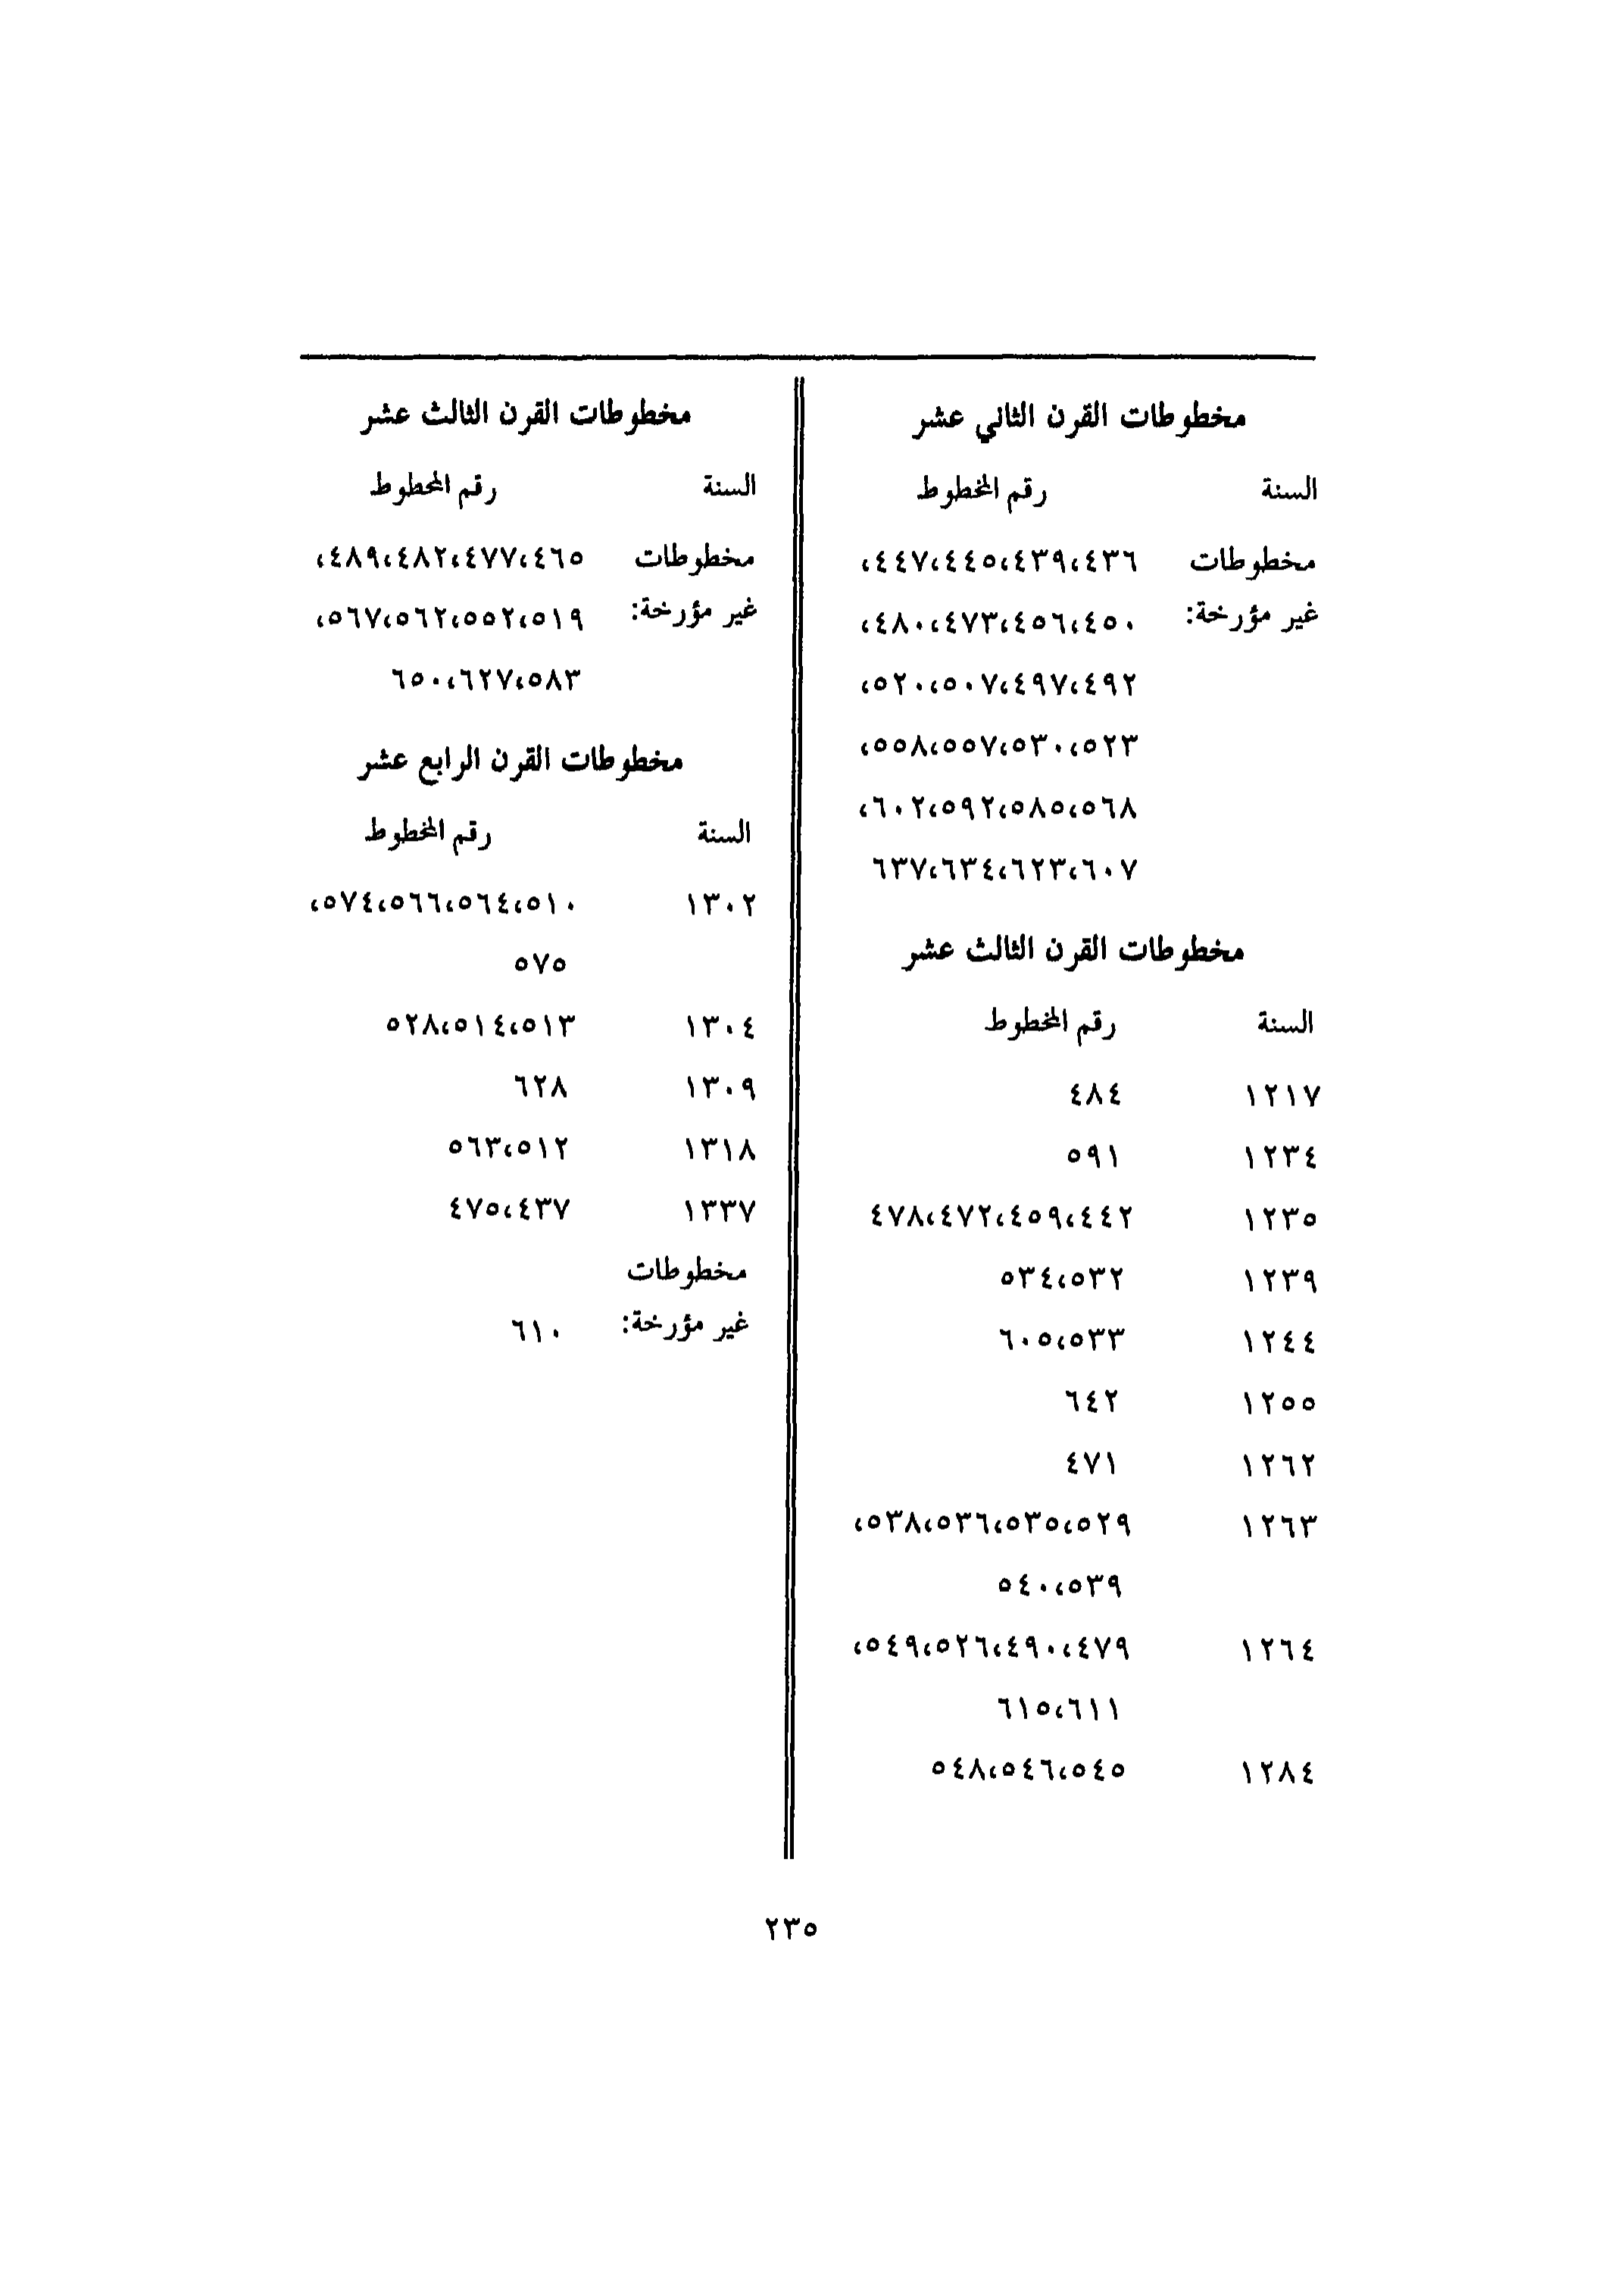 مخطوطات القرن الثاني عشر
السنة رقم المخطوط
مخطوطات ٤٣٦،٤٣٩،٤٤٥،٤٤٧،
غير مؤرخة: ٤٥٠،٤٥٦،٤٧٣،٤٨٠،
٤٩٢،٤٩٧،٥٠٧،٥٢٠،
٥٢٣،٥٣٠،٥٥٧،٥٥٨،
٥٦٨،٥٨٥،٥٩٢،٦٠٢،
٦٠٧،٦٢٣،٦٣٤،٦٣٧
مخطوطات القرن الثالث عشر
السنة رقم المخطوط
١٢١٧ ٤٨٤
١٢٣٤ ٥٩١
١٢٣٥ ٤٤٢،٤٥٩،٤٧٢،٤٧٨
١٢٣٩ ٥٣٢،٥٣٤
١٢٤٤ ٥٣٣،٦٠٥
١٢٥٥ ٦٤٢
١٢٦٢ ٤٧١
١٢٦٣ ٥٢٩،٥٣٥،٥٣٦،٥٣٨،
٥٣٩،٥٤٠
١٢٦٤ ٤٧٩،٤٩٠،٥٢٦،٥٤٩،
٦١١،٦١٥
١٢٨٤ ٥٤٥،٥٤٦،٥٤٨
مخطوطات القرن الثالث عشر
السنة رقم المخطوط
مخطوطات ٤٦٥،٤٧٧،٤٨٢،٤٨٩،
غير مؤرخة: ٥١٩،٥٥٢،٥٦٢،٥٦٧،
٥٨٣،٦٢٧،٦٥٠
مخطوطات القرن الرابع عشر
السنة رقم المخطوط
١٣٠٢ ٥١٠،٥٦٤،٥٦٦،٥٧٤،
٥٧٥
١٣٠٤ ٥١٣،٥١٤،٥٢٨
١٣٠٩ ٦٢٨
١٣١٨ ٥١٢،٥٦٣
١٣٣٧ ٤٣٧،٤٧٥
مخطوطات
غير مؤرخة: ٦١٠
٢٣٥